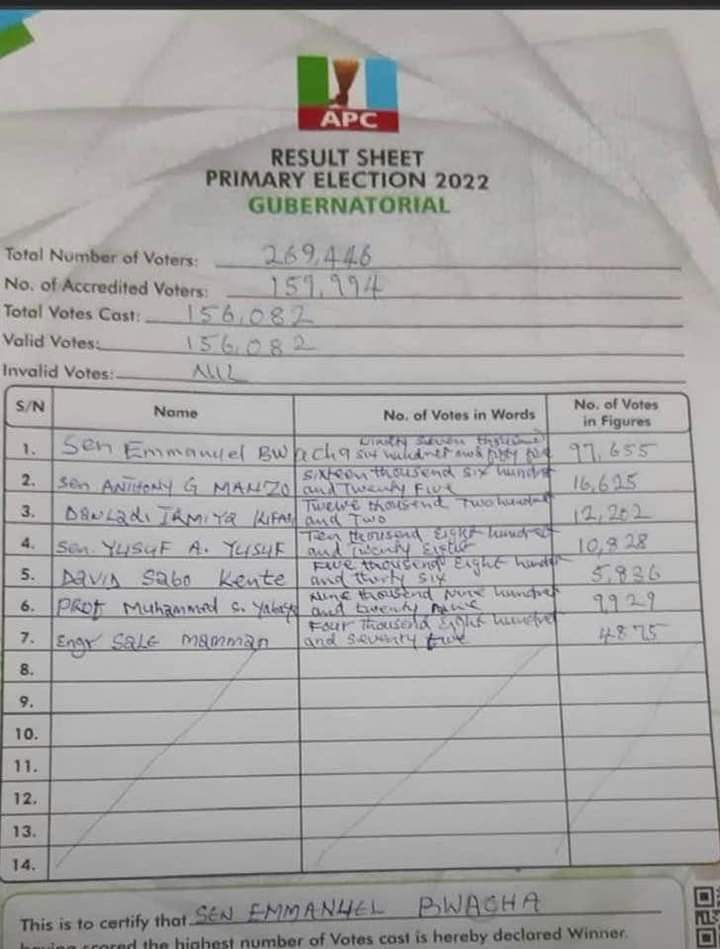 APC
RESULT SHEET
PRIMARY ELECTION 2022
GUBERNATORIAL
Total Number of Voters: 269,446
No. of Accredited Voters: 159,994
Total Votes Cast: 156,082
Valid Votes: 156,082
Invalid Votes: NIL
S/N Name No. of Votes in Words No. of Votes in Figures
1. Sen Emmanuel Bwacha Ninety Seven thousand six hundred and fifty five 97,655
2. Sen. ANTHONY G MANZO Sixteen thousand six hundred and Twenty Five 16,625
3. DANLADI IRMIYA KIFASI Twelve thousand Two hundred and Two 12,202
4. Sen. YUSUF A. YUSUF Ten thousand Eight hundred and Twenty Eight 10,828
5. DAVID Sabo Kente Five thousand Eight hundred and thirty six 5,836
6. PROF Muhammed S. Nine thousand Nine hundred and twenty Nine 9929
7. Engr SALE mamman Four Thousand Eight hundred and Seventy five 4875
8.
9.
10.
11.
12.
13.
14.
This is to certify that SEN EMMANUEL BWACHA
having scored the highest number of Votes cast is hereby declared Winner.